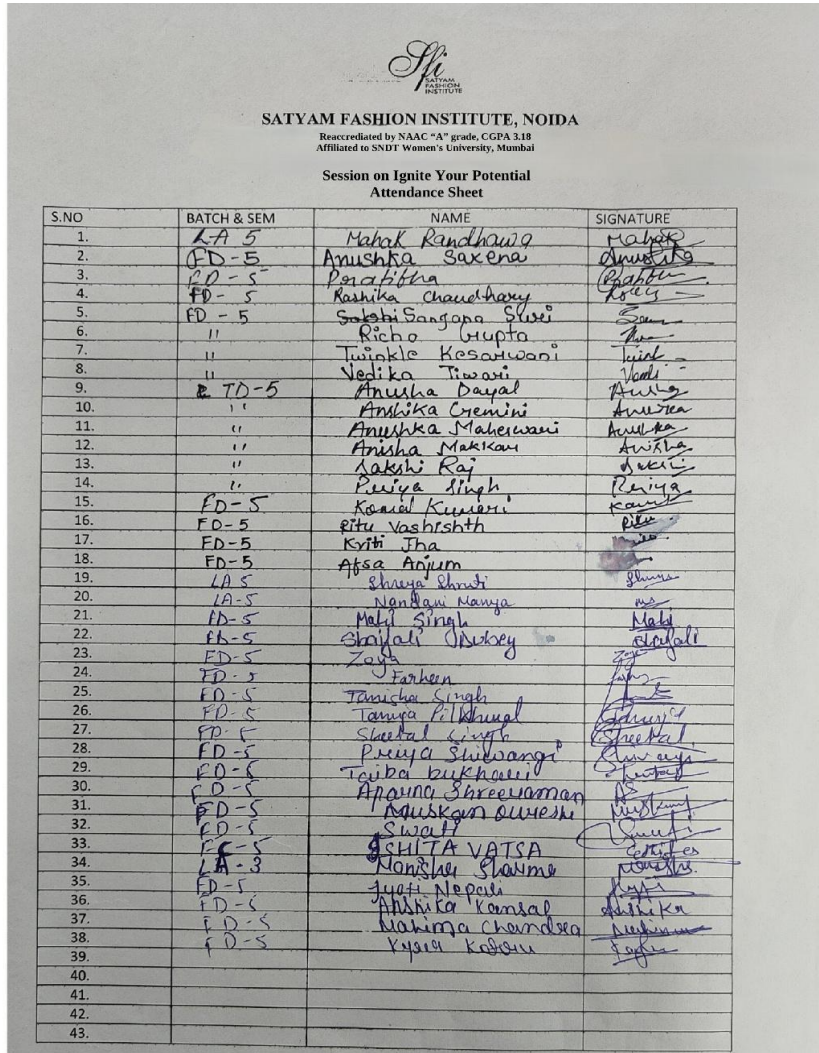 Sfi
SATYAM
FASHION
INSTITUTE
SATYAM FASHION INSTITUTE, NOIDA
Reaccrediated by NAAC “A” grade, CGPA 3.18
Affiliated to SNDT Women's University, Mumbai
Session on Ignite Your Potential
Attendance Sheet
S.NO BATCH & SEM NAME SIGNATURE
1. LA 5 Mahak Randhawa Mahak
2. FD-5 Anushka Saxena Anushka
3. FD-5 Pratibha
4. FD-5 Rashika Chaudhary
5. FD-5 Sangana
6. " Richa Gupta
7. " Twinkle Kesarwani
8. " Vedika Tiwari
9. TD-5 Anusha Dayal
10. " Anshika Gemini
11. " Anushka Maheswari Anushka
12. " Anisha Makkar Anisha
13. " Sakshi Raj Sakshi
14. " Priya Singh Priya
15. FD-5 Komal Kumari
16. FD-5 Ritu Vashishth Ritu
17. FD-5 Kriti Jha
18. FD-5 Afsa Anjum
19. LA 5 Shreya Shruti
20. LA-5 Nandani Manya
21. FD-5 Mahi Singh Mahi
22. FD-5 Shaifali Dubey Shaifali
23. FD-5 Zoya Zoya
24. FD-5 Farheen
25. FD-5 Tanisha Singh
26. FD-5 Tanuja Pilkhwal Tanuja
27. FD-5 Sheetal Singh Sheetal
28. FD-5 Priya Shivangi
29. FD-5 Taiba bukhari
30. FD-5 Aparna Shreeraman AS
31. FD-5 Muskan Qureshi Muskan
32. FD-5 Swati Swati
33. ISHITA VATSA
34. LA-3 Manisha Sharma Manisha
35. FD-5 Jyoti Nepali Jyoti
36. FD-5 Anshika Kansal Anshika
37. FD-5 Mahima Chandra
38. FD-5
39.
40.
41.
42.
43.